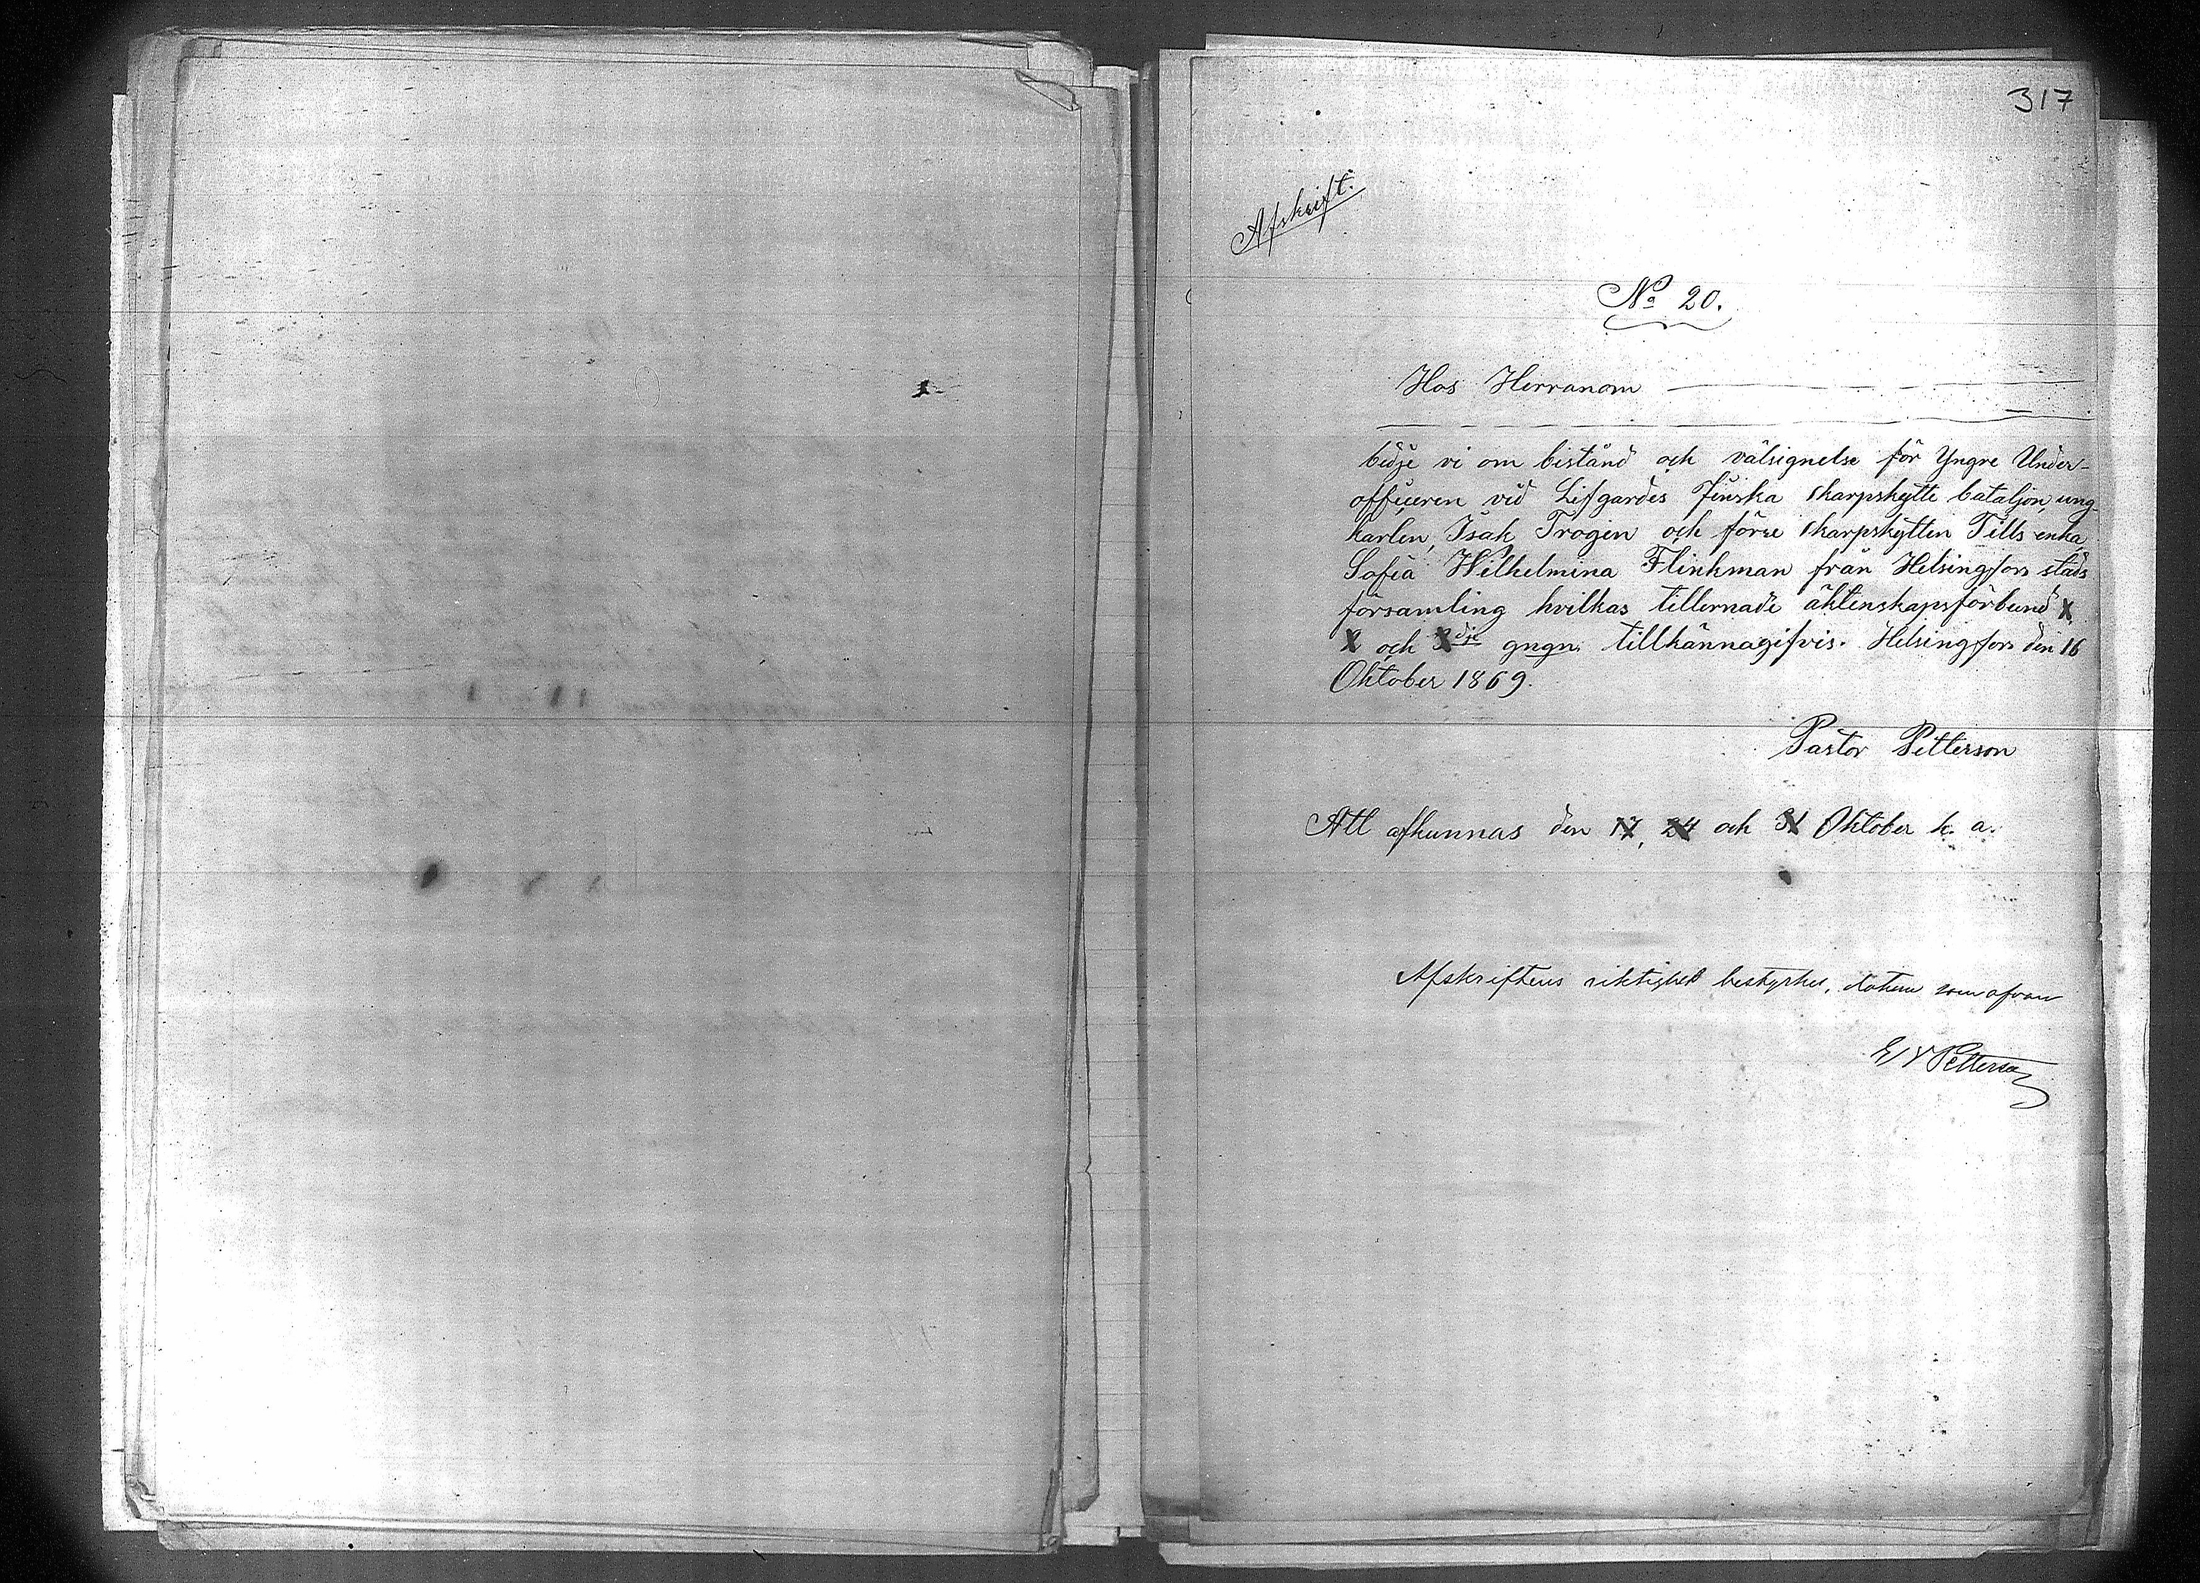 317
Afskrift.
No 20.
Hos Herranom
bedje vi om bistånd och välsignelse för Yngre Under-
officeren vid Lifgardes Finska skarpskytte bataljon, ung-
karlen, Isak Trogen och förre skarpskytten Tills enka
Sofia Wilhelmina Flinkman från Helsingfors stads
församling hvilkas tillernade äktenskapsförbund
och 3dje gngn. tillkännagifves. Helsingfors den 16
Oktober 1869.
Pastor Petterson
Att afkunnas den 17, 24 och 31 Oktober h. a.
Afskriftens riktighet bestyrker, datum som ofvan
Petterson